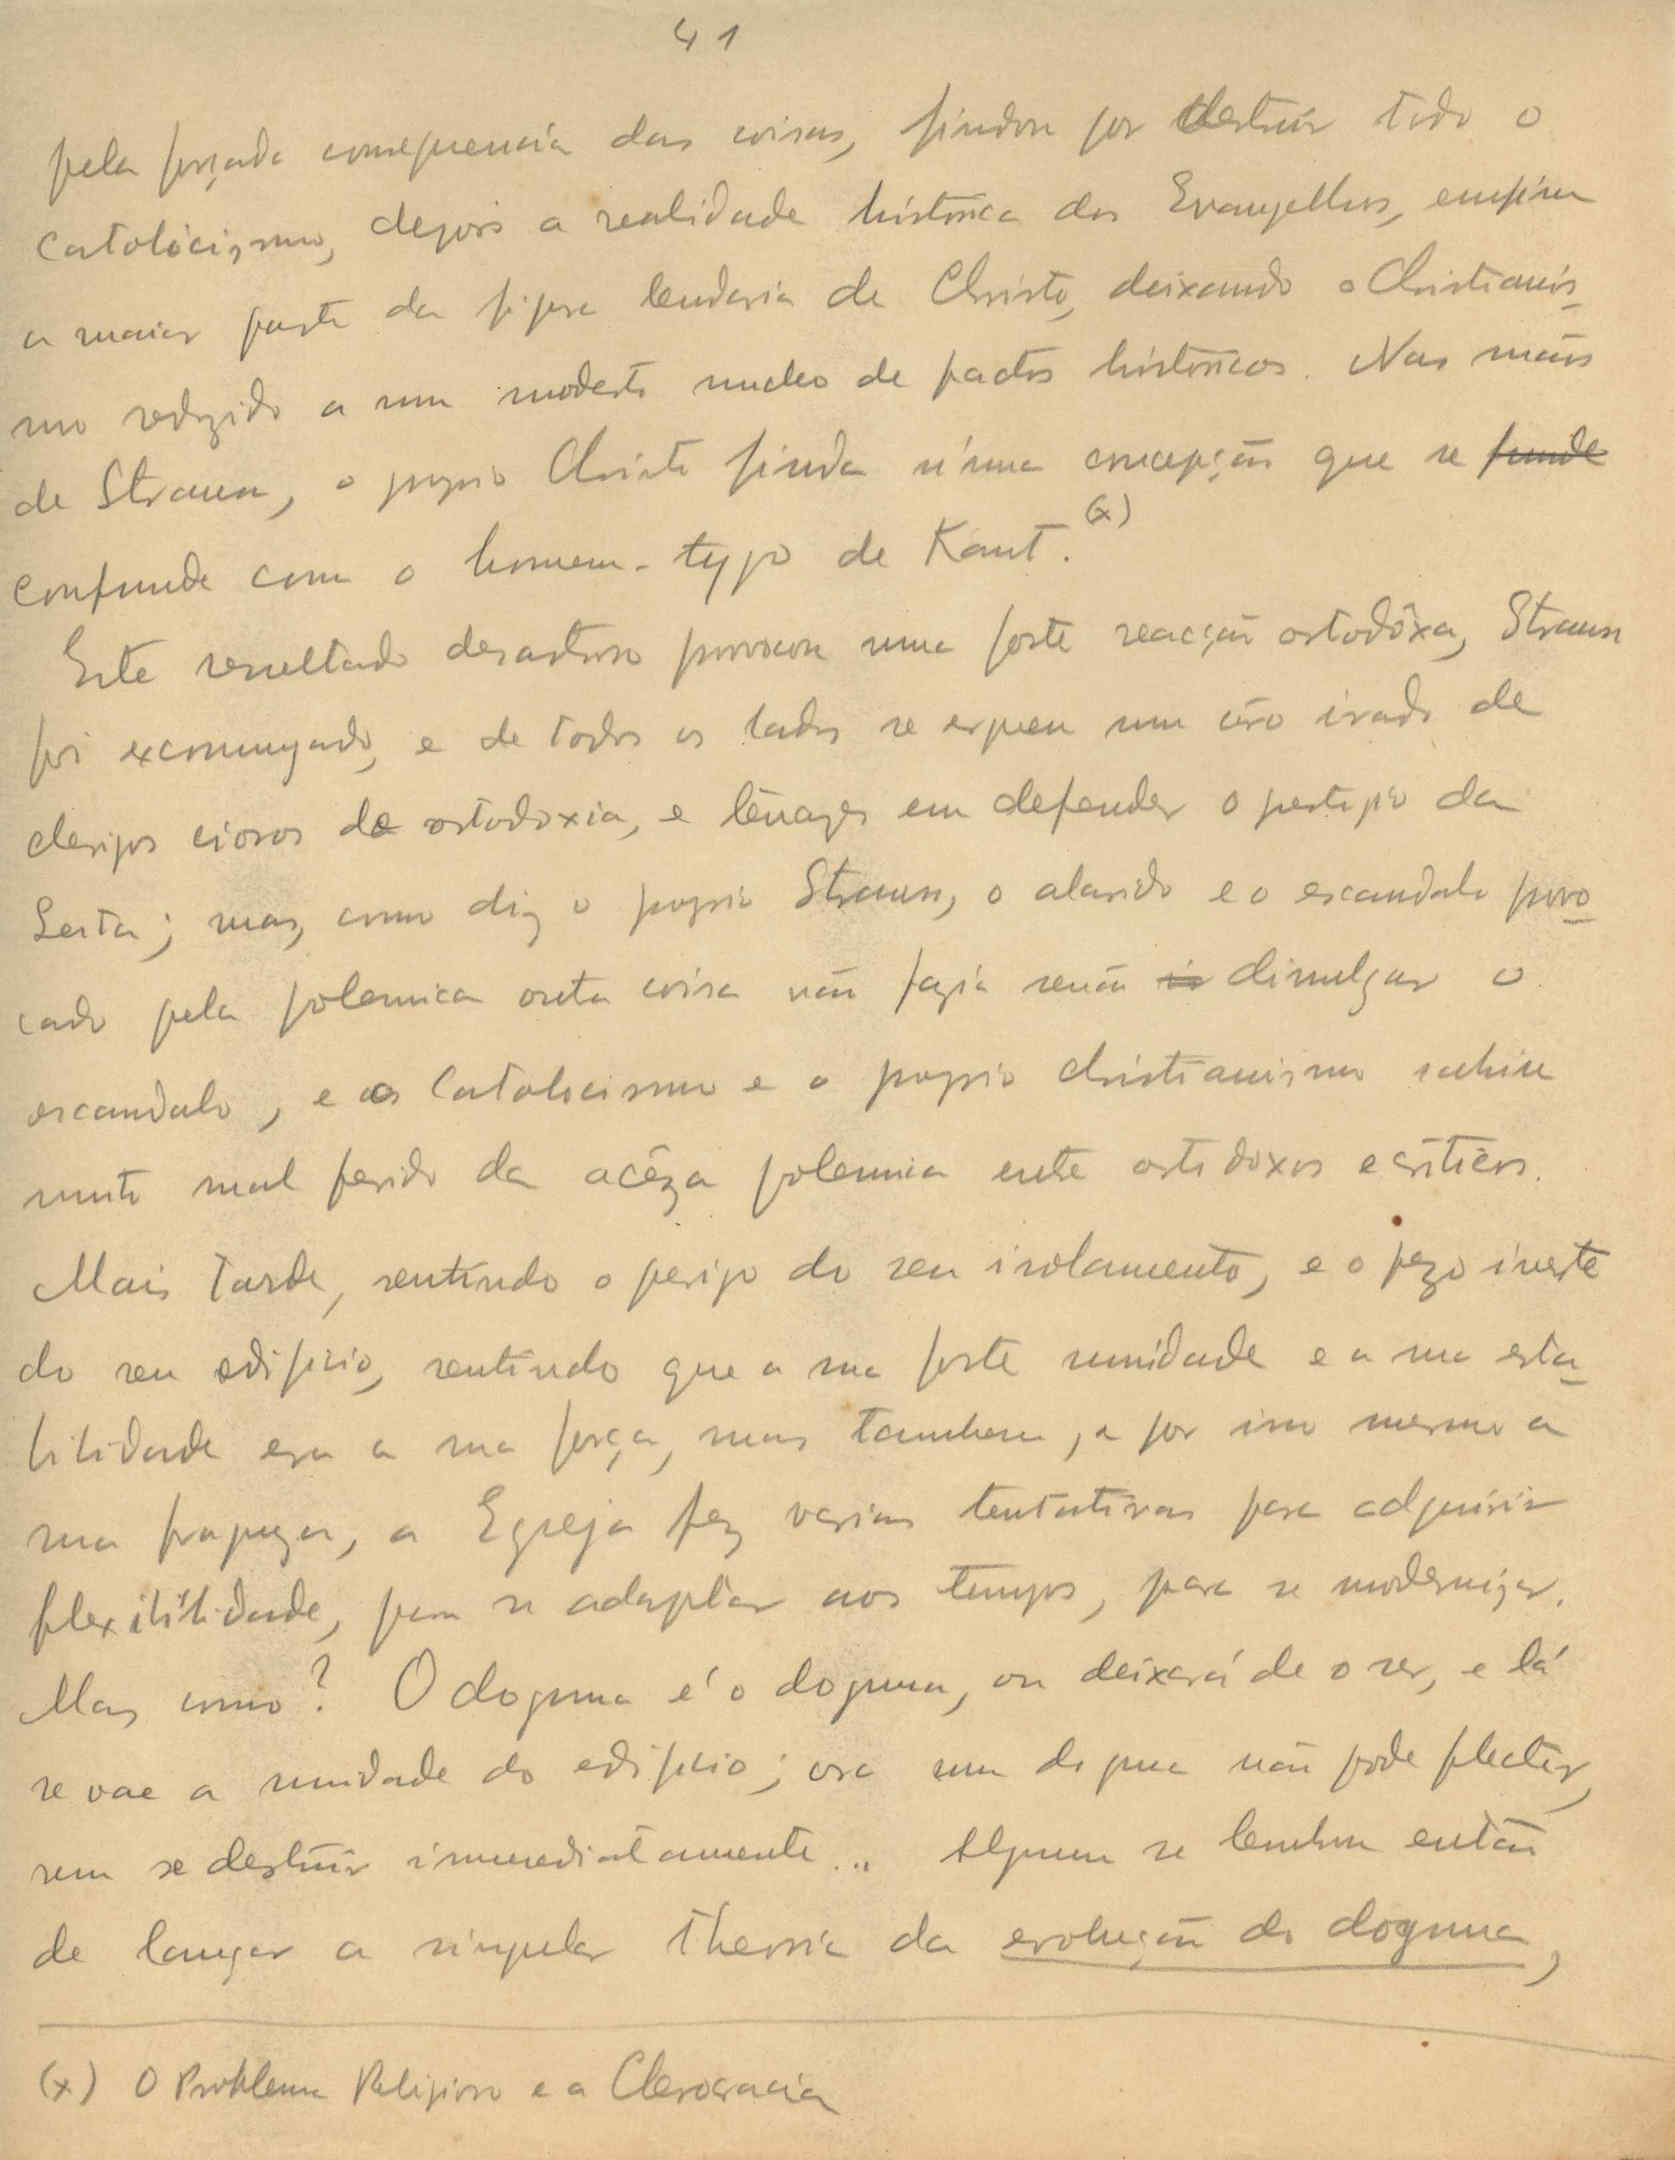 41
pela forçada consequencia das coisas, findou por destruir todo o
Catolicismo, depois a realidade histórica dos Evangelhos, emfim
a maior parte da figura lendaria de Christo, deixando o Christianis-
mo reduzido a um modesto nucleo de factos históricos. Nas mãos
de Strauss, o proprio Christo finda n'uma concepção que se funde
confunde com o homem-typo de Kant. (x)
Este resultado desastroso provocou uma forte reacção ortodóxa, Strauss
foi excomungado, e de todos os lados se ergueu um côro irado de
clerigos ciosos de ortodoxia, e tenazes em defender o prestigio da
Seita; mas, como diz o proprio Strauss, o alarido e o escandalo provo-
cado pela polemica outra coisa não fazia senão divulgar o
escandalo, e o Catolicismo e o proprio christianismo sahiu
muito mal ferido da acêza polemica entre ortodoxos e críticos.
Mais tarde, sentindo o perigo do seu isolamento, e o pezo inerte
do seu edificio, sentindo que a sua forte unidade e a sua esta-
bilidade era a sua força, mas tambem, e por isso mesmo a
sua fraqueza, a Egreja fez varias tentativas para adquirir
flexibilidade, para se adaptar aos tempos, para se modernizar.
Mas como? O dogma é o dogma, ou deixará de o ser, e lá
se vae a unidade do edificio; ora um dogma não póde flectir,
sem se destruir immediatamente... Alguem se lembrou então
de lançar a singular theoria da evolução do dogma,
(x) O Problema Religioso e a Clerocracia